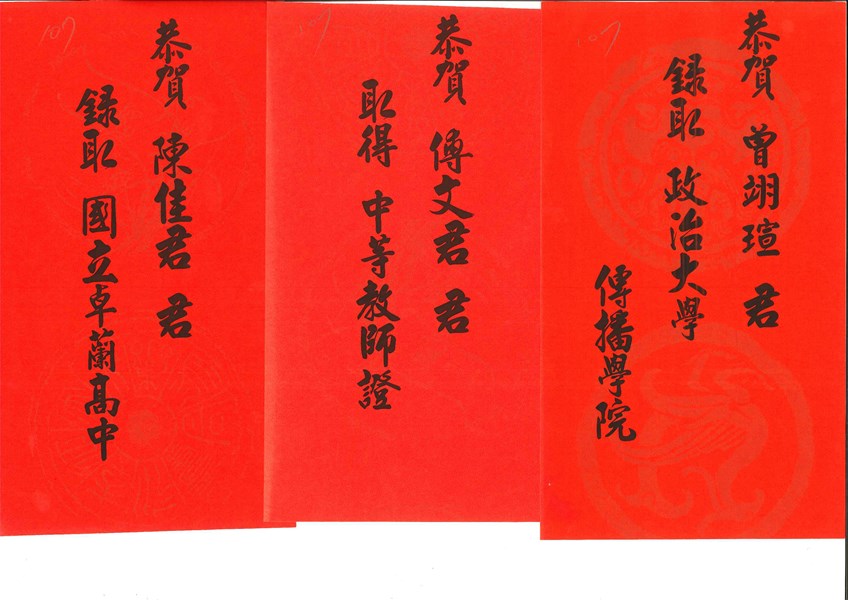 恭賀 曾翊瑄 君
錄取 政治大學
傳播學院
恭賀 傅文君 君
取得 中等教師證
恭賀 陳佳君 君
錄取 國立卓蘭高中
107
107
107